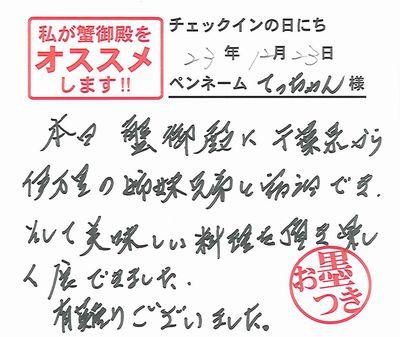 私が蟹御殿を
オススメ
します!!
チェックインの日にち
23年12月23日
ペンネーム てっちゃん 様
本日 蟹御殿に 千葉県から
伊万里の姉妹兄弟と 宿泊でき、
そして美味しい料理を頂き楽し
く居できました。
有難うございました。
お墨つき